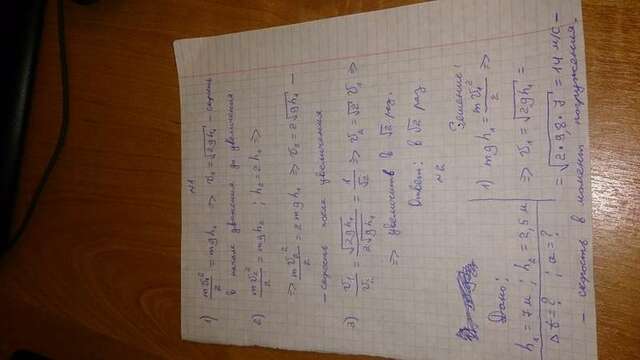 №1
1) mv₁²/2 = mgh₁ ⇒ v₁ = √2gh₁ – скорость
в начале движения до увеличения
2) mv₂²/2 = mgh₂ ; h₂ = 2h₁ ⇒
⇒ mv₂²/2 = 2mgh₁ ⇒ v₂ = 2√gh₁ –
– скорость после увеличения
3) v₁/v₂ = √2gh₁/2√gh₁ = 1/√2 ⇒ v₂ = √2 v₁ ⇒
⇒ увеличить в √2 раз.
Ответ: в √2 раз
№2
Дано:
h₁ = 7м ; h₂ = 2,5 м
Δt = ? ; a = ?
Решение:
1) mgh₁ = mv₁²/2 ⇒
⇒ v₁ = √2gh₁ =
= √2·9,8·7 = 14 м/с –
– скорость в момент погружения.